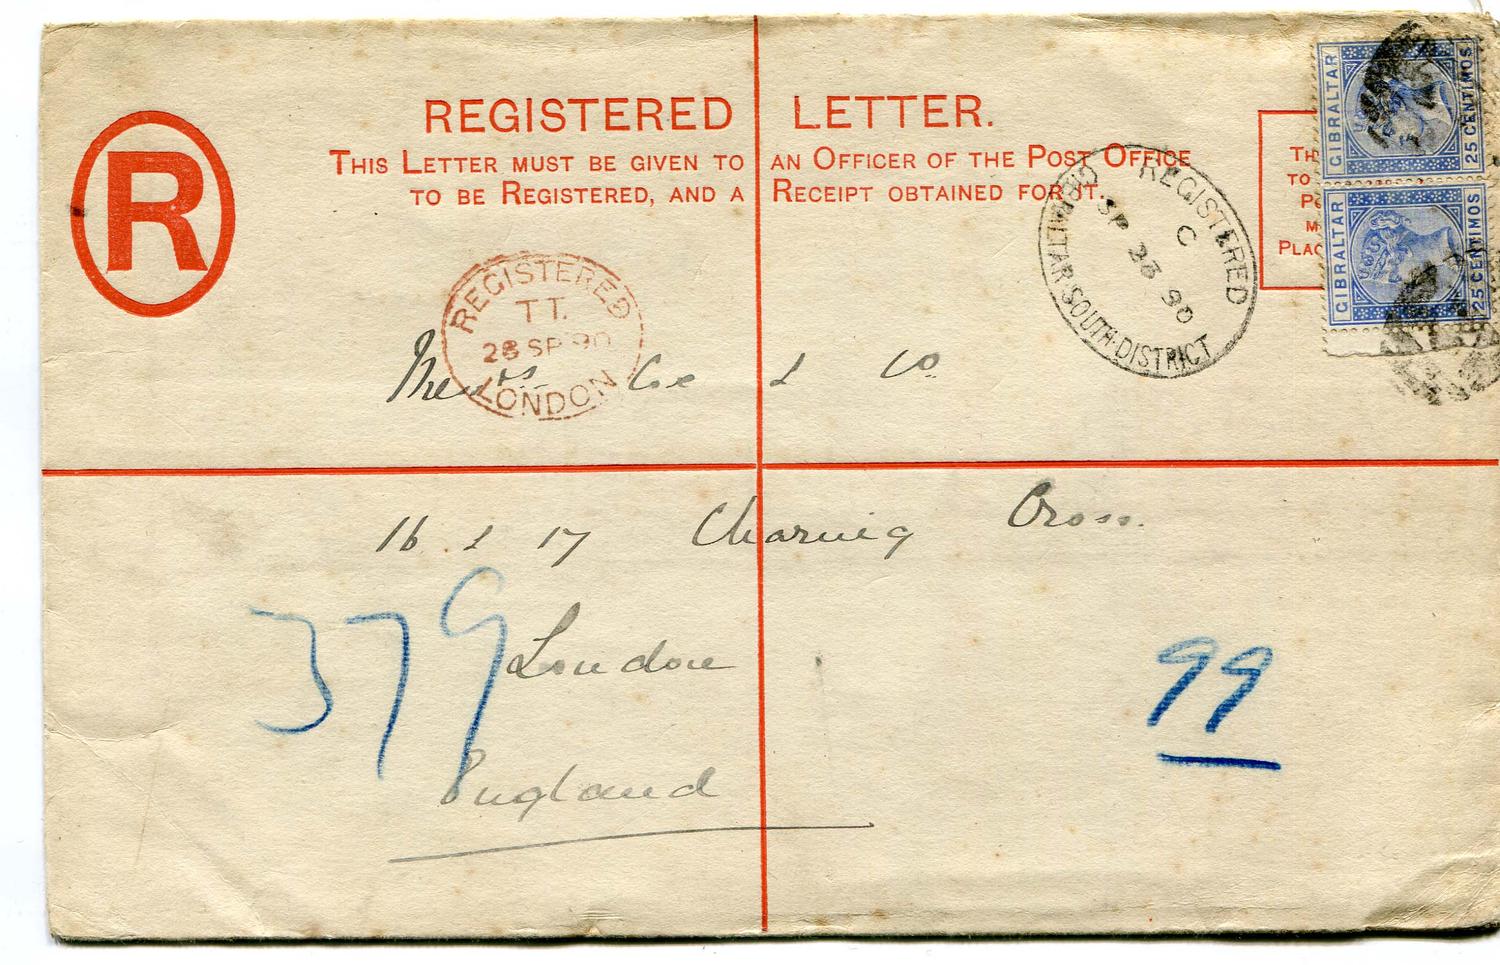 R
REGISTERED LETTER.
THIS LETTER MUST BE GIVEN TO AN OFFICER OF THE POST OFFICE
TO BE REGISTERED, AND A RECEIPT OBTAINED FOR IT.
GIBRALTAR
25 CENTIMOS
GIBRALTAR
25 CENTIMOS
TH
TO
PO
M
PLAC
REGISTERED
C
SP 23 90
GIBRALTAR SOUTH·DISTRICT
REGISTERED
TT.
28 SP 90
LONDON
Messrs Cox & Co
16 & 17 Charing Cross.
London
England
379
99